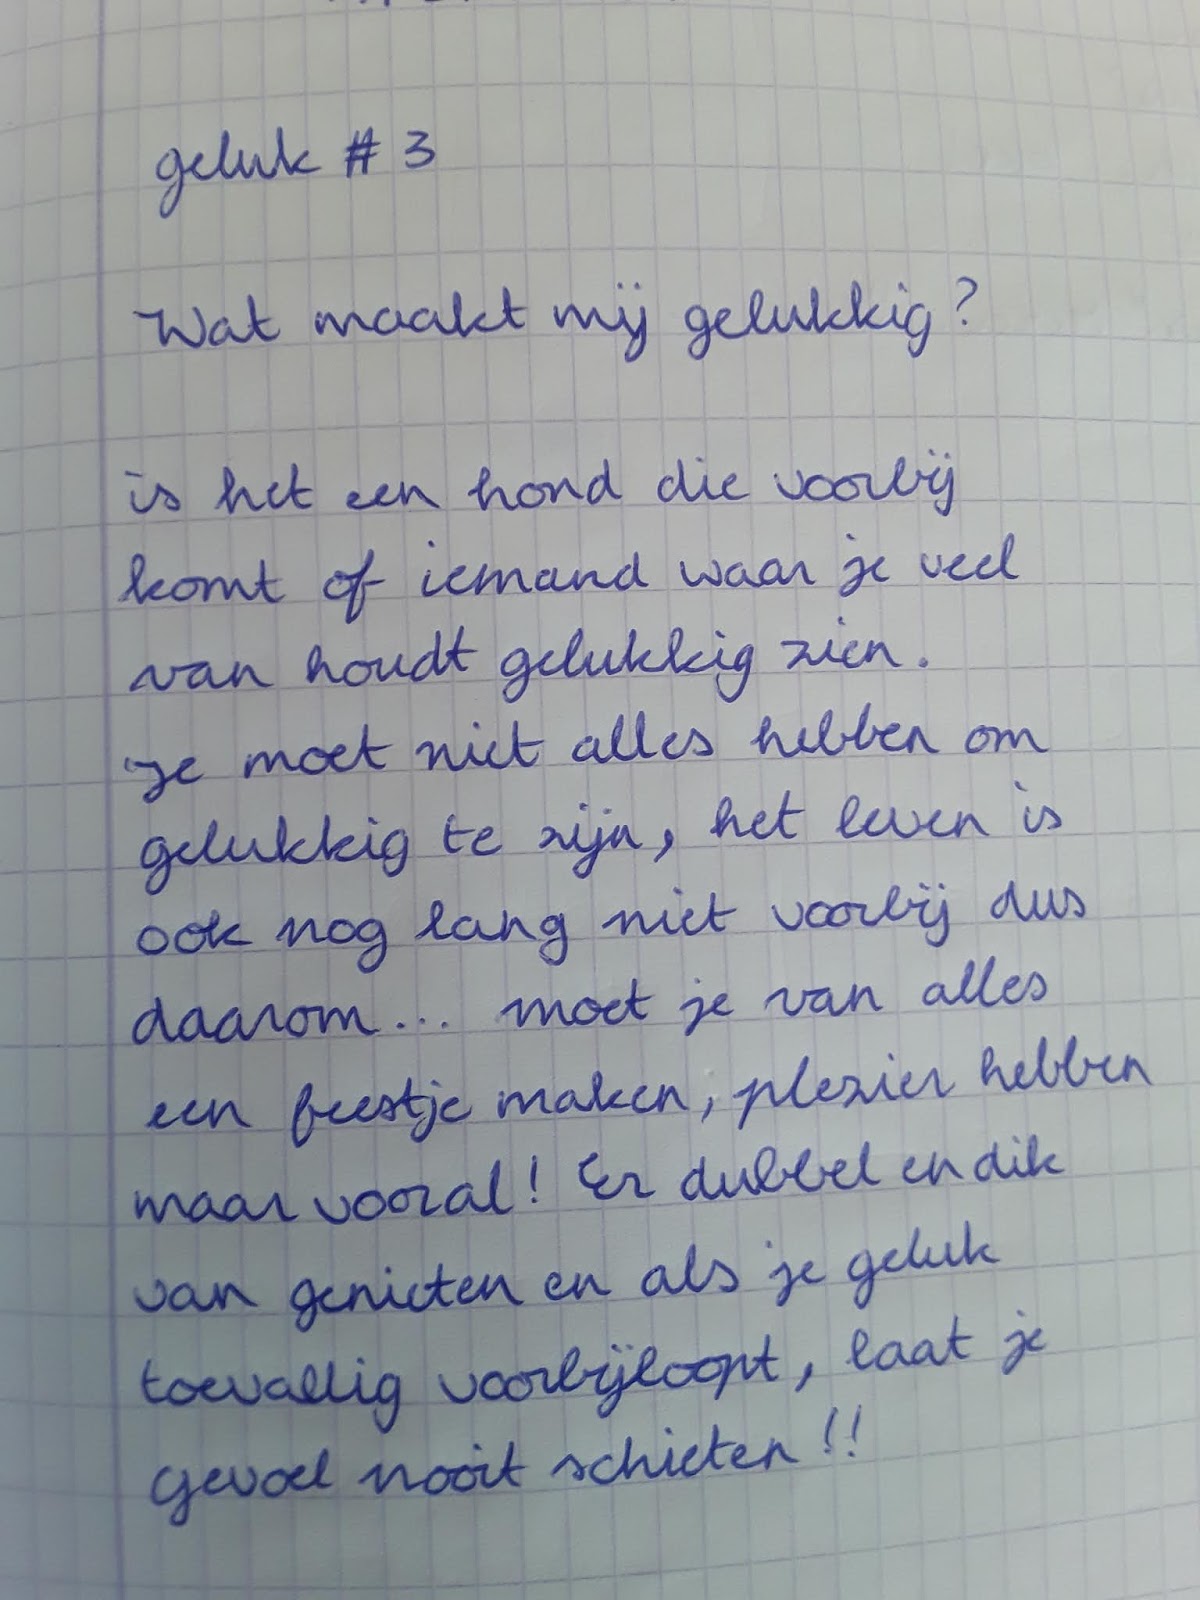 geluk # 3
Wat maakt mij gelukkig?
is het een hond die voorbij
komt of iemand waar je veel
van houdt gelukkig zien.
Je moet niet alles hebben om
gelukkig te zijn, het leven is
ook nog lang niet voorbij dus
daarom... moet je van alles
een feestje maken, plezier hebben
maar vooral! Er dubbel en dik
van genieten en als je geluk
toevallig voorbijloopt, laat je
gevoel nooit schieten!!